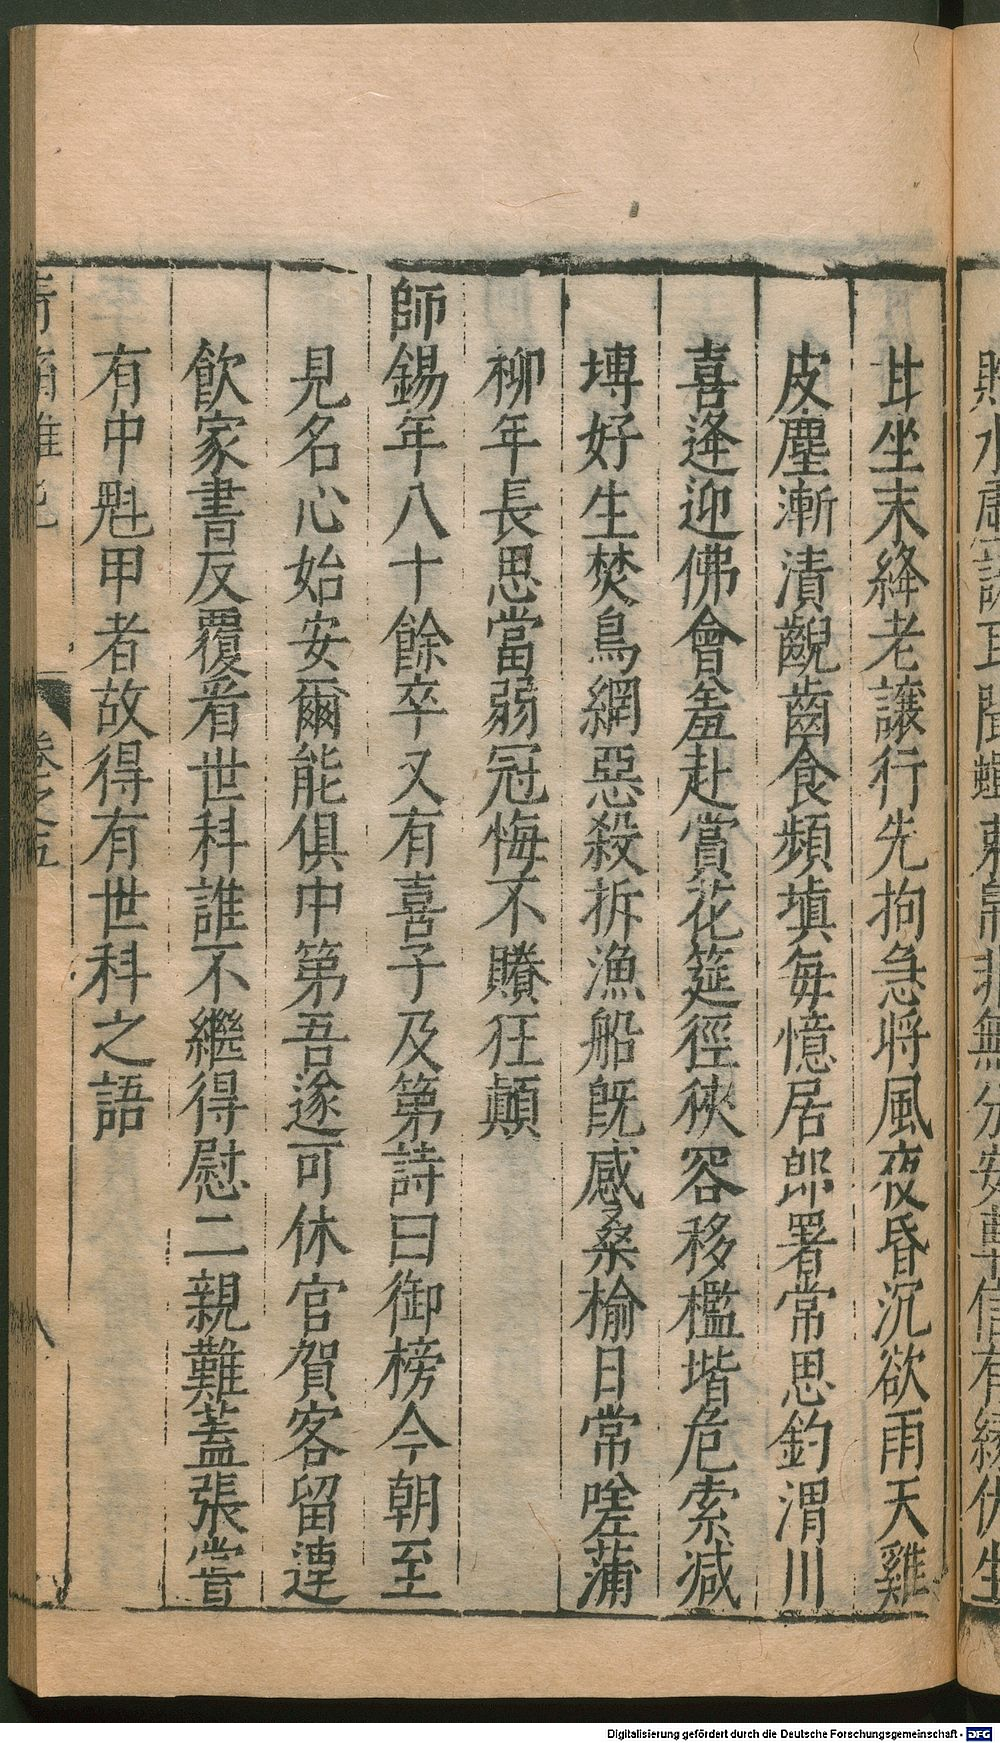 甘坐末絳老讓行先拘急將風夜昏沉欲雨天雞
皮塵漸漬齯齒食頻填每憶居郎署常思釣渭川
喜逢迎佛會羞赴賞花筵徑狹容移檻堦危索减
塼好生焚鳥網惡殺拆漁船旣感桑榆日常嗟蒲
柳年長思當弱冠悔不賸狂顛
師錫年八十餘卒又有喜子及第詩曰御榜今朝至
見名心始安爾能俱中第吾遂可休官賀客留連
飲家書反覆看世科誰不繼得慰二親難蓋張嘗
有中魁甲者故得有世科之語
卷之五
八
Digitalisierung gefördert durch die Deutsche Forschungsgemeinschaft - DFG